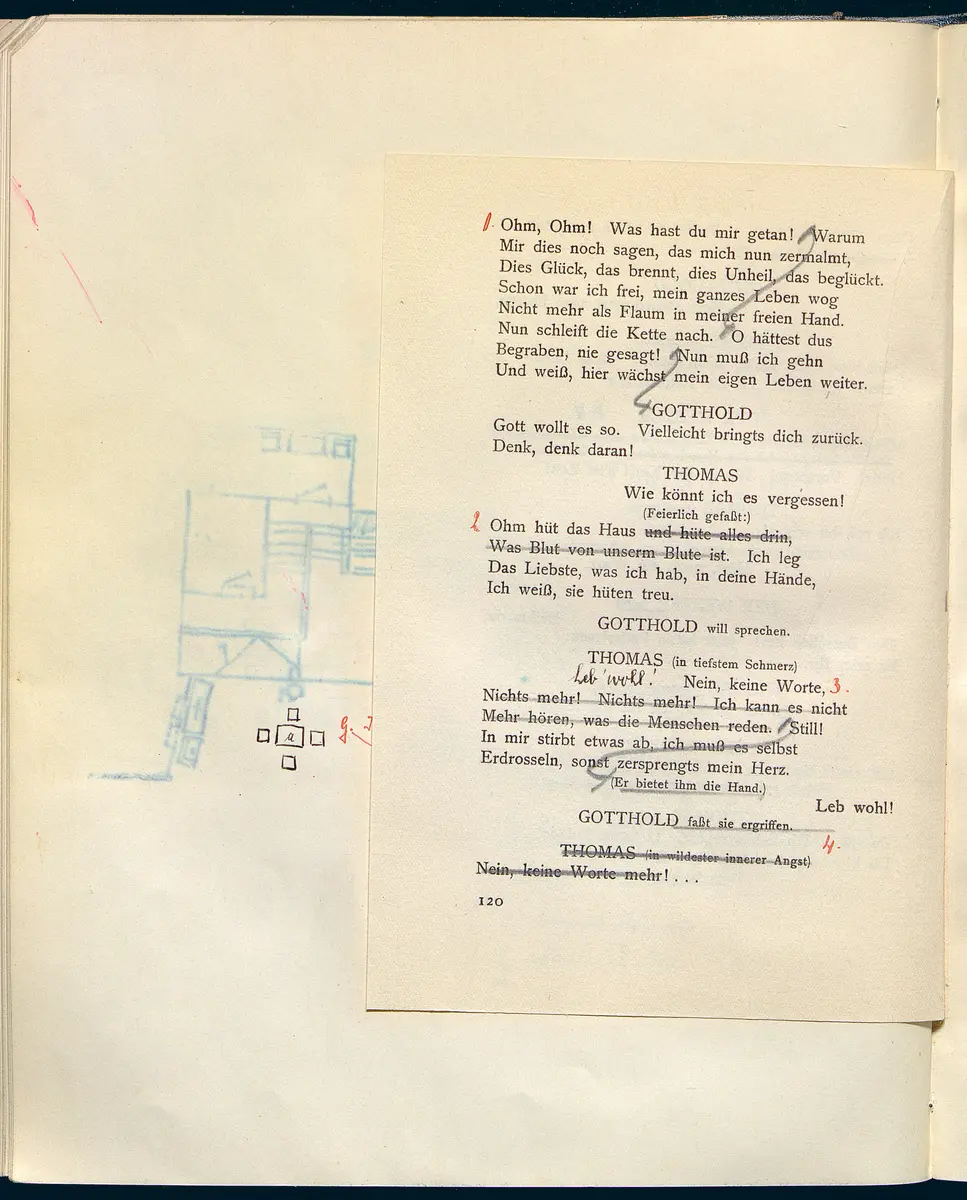 1. Ohm, Ohm! Was hast du mir getan! Warum
Mir dies noch sagen, das mich nun zermalmt,
Dies Glück, das brennt, dies Unheil, das beglückt.
Schon war ich frei, mein ganzes Leben wog
Nicht mehr als Flaum in meiner freien Hand.
Nun schleift die Kette nach. O hättest dus
Begraben, nie gesagt! Nun muß ich gehn
Und weiß, hier wächst mein eigen Leben weiter.
GOTTHOLD
Gott wollt es so. Vielleicht bringts dich zurück.
Denk, denk daran!
THOMAS
Wie könnt ich es vergessen!
(Feierlich gefaßt:)
2 Ohm hüt das Haus und hüte alles drin,
Was Blut von unserm Blute ist. Ich leg
Das Liebste, was ich hab, in deine Hände,
Ich weiß, sie hüten treu.
GOTTHOLD will sprechen.
THOMAS (in tiefstem Schmerz)
Leb' wohl! Nein, keine Worte, 3.
Nichts mehr! Nichts mehr! Ich kann es nicht
Mehr hören, was die Menschen reden. Still!
In mir stirbt etwas ab, ich muß es selbst
Erdrosseln, sonst zersprengts mein Herz.
(Er bietet ihm die Hand.)
Leb wohl!
GOTTHOLD faßt sie ergriffen.
4.
THOMAS (in wildester innerer Angst)
Nein, keine Worte mehr! . . .
120